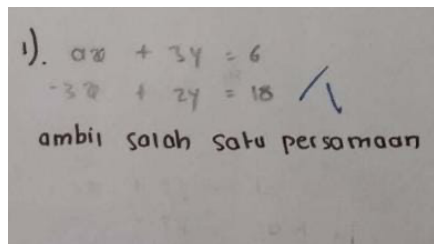 1). ax + 3y = 6
-3x + 2y = 18
ambil salah satu persamaan